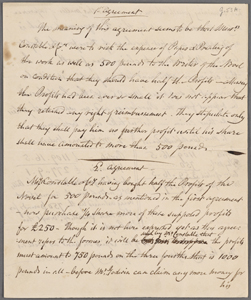 1st agreement
The meaning of this agreement seems to be that Messrs
Constable & Co were to risk the expence of Paper & Printing of
the work as well as 500 pounds to the Writer of the Novel
on condition that they should have half the Profits — allowing
the Profits had been ever so small it does not appear that
they retained any right of reimbursement. They stipulate only
that they shall pay him no further profit until his share
shall have amounted to more than 500 pounds.
2d agreement
Messrs Constable & Co having bought half the Profits of the
Novel for 500 pounds, as mentioned in the first agreement
now purchase ¼ share more of these supposed profits
for £250 — Though it is not here expressed yet as this agree
ment refers to the former it will be
the profits
must amount to 750 pounds on the three fourths that is 1000
pounds in all — before Mr Godwin can claim any more money for
his